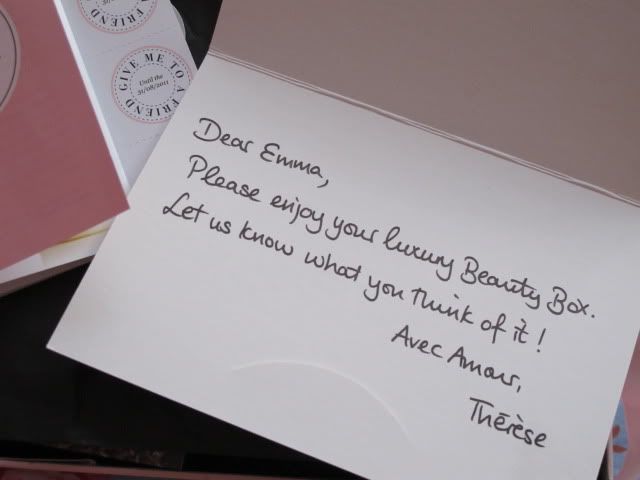 GIVE ME TO A FRIEND
Until the
31/08/2011
Dear Emma,
Please enjoy your luxury Beauty Box.
Let us know what you think of it!
Avec Amour,
Thérèse